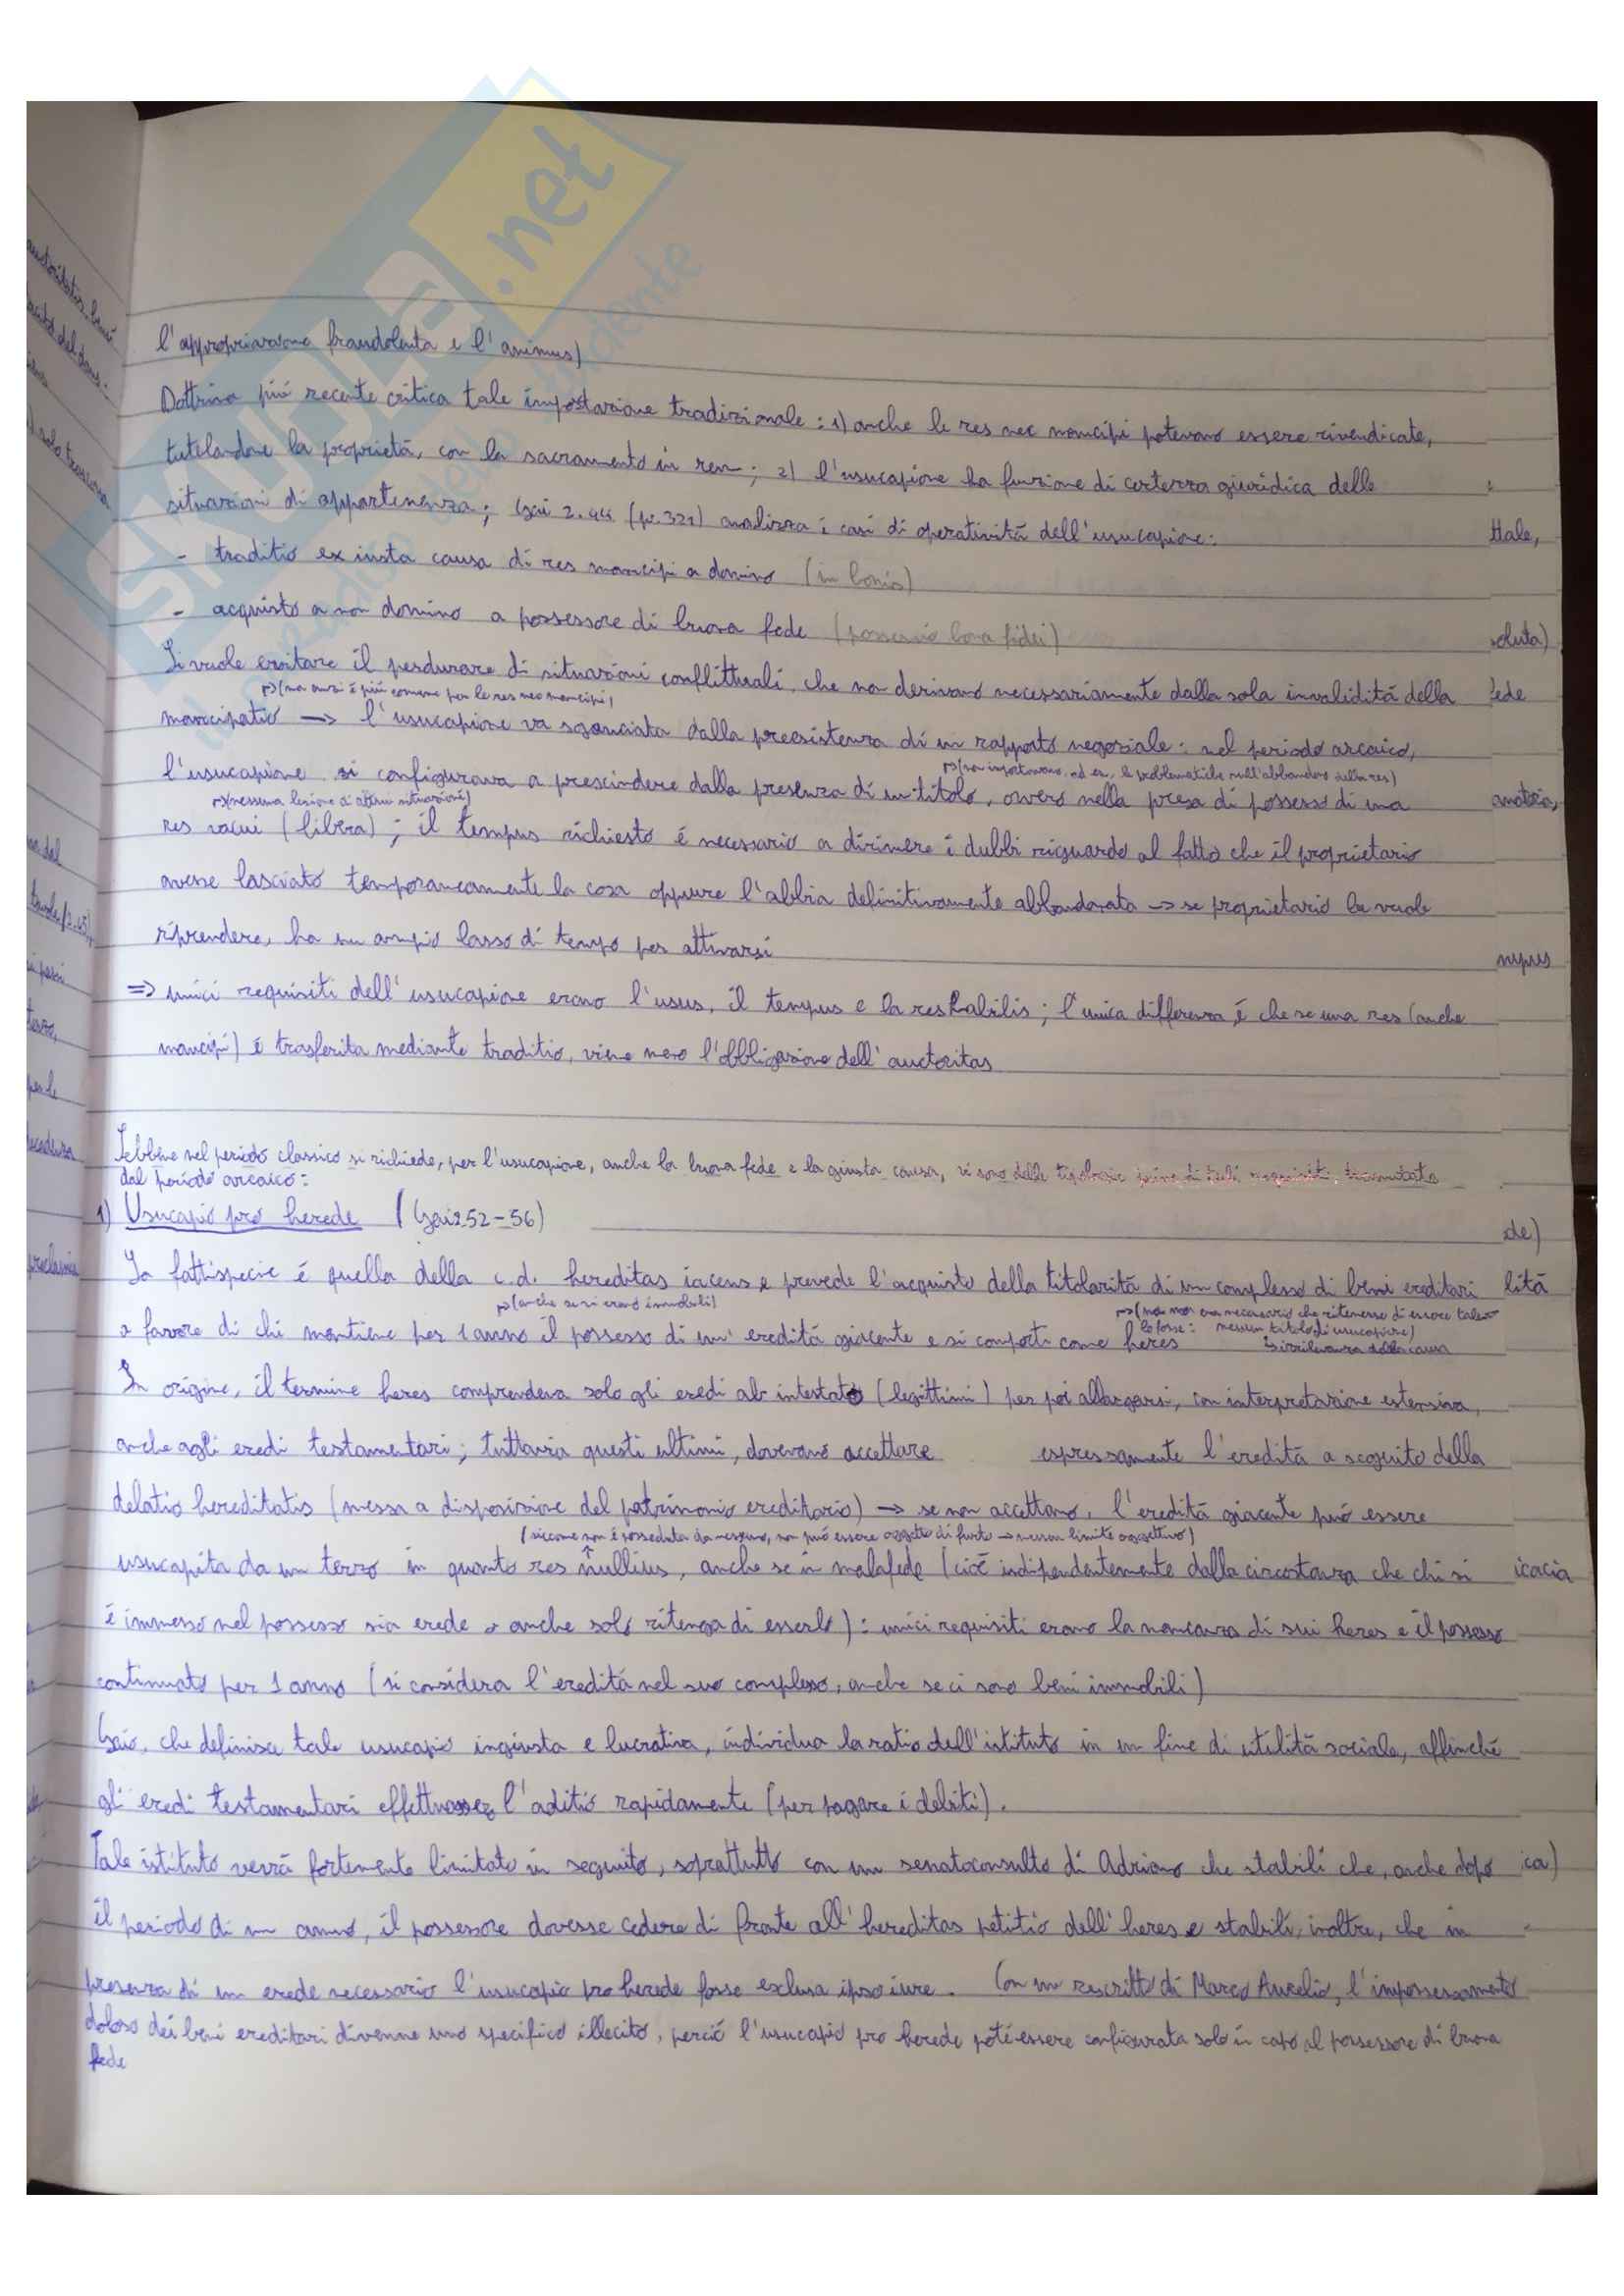 l'appropriazione fraudolenta e l'animus)
Dottrina più recente critica tale impostazione tradizionale: 1) anche le res nec mancipi potevano essere rivendicate,
tutelandone la proprietà, con la sacramento in rem; 2) l'usucapione ha funzione di certezza giuridica delle
situazioni di appartenenza; Gai 2.44 (p. 321) analizza i casi di operatività dell'usucapione:
- traditio ex iusta causa di res mancipi a domino (in bonis)
- acquisto a non domino a possessore di buona fede (possessio bona fidei)
Si vuole evitare il perdurare di situazioni conflittuali, che non derivano necessariamente dalla sola invalidità della
(ma anzi è più comune per le res nec mancipi)
mancipatio → l'usucapione va sganciata dalla preesistenza di un rapporto negoziale: nel periodo arcaico,
l'usucapione si configurava a prescindere dalla presenza di un titolo, ovvero nella presa di possesso di una
(non importavano, ad es, le problematiche sull'abbandono della res)
(nessuna lesione di altrui situazioni)
res vacui (libera); il tempus richiesto è necessario a dirimere i dubbi riguardo al fatto che il proprietario
avesse lasciato temporaneamente la cosa oppure l'abbia definitivamente abbandonata → se proprietario la vuole
riprendere, ha un ampio lasso di tempo per attivarsi
⇒ unici requisiti dell'usucapione erano l'usus, il tempus e la res habilis; l'unica differenza è che se una res (anche
mancipi) è trasferita mediante traditio, viene meno l'obbligazione dell'auctoritas
Sebbene nel periodo classico si richiede, per l'usucapione, anche la buona fede e la giusta causa, vi sono delle tipologie prive di tali requisiti, tramandate
dal periodo arcaico:
1) Usucapio pro herede (Gai 2.52-56)
La fattispecie è quella della c.d. hereditas iacens e prevede l'acquisto della titolarità di un complesso di beni ereditari
(anche se vi erano immobili)
(ma non era necessario che ritenesse di essere tale o
lo fosse: nessun titolo di usucapione)
a favore di chi mantiene per 1 anno il possesso di un'eredità giacente e si comporti come heres
irrilevanza della causa
In origine, il termine heres comprendeva solo gli eredi ab intestato (legittimi) per poi allargarsi, con interpretazione estensiva,
anche agli eredi testamentari; tuttavia questi ultimi, dovevano accettare espressamente l'eredità a seguito della
delatio hereditatis (messa a disposizione del patrimonio ereditario) → se non accettano, l'eredità giacente può essere
(siccome non è posseduta da nessuno, non può essere oggetto di furto → nessun limite oggettivo)
usucapita da un terzo in quanto res nullius, anche se in malafede (cioè indipendentemente dalla circostanza che chi si
è immesso nel possesso sia erede o anche solo ritenga di esserlo): unici requisiti erano la mancanza di sui heres e il possesso
continuato per 1 anno (si considera l'eredità nel suo complesso, anche se ci sono beni immobili)
Gaio, che definisce tale usucapio ingiusta e lucrativa, individua la ratio dell'istituto in un fine di utilità sociale, affinché
gli eredi testamentari effettuassero l'aditio rapidamente (per pagare i debiti).
Tale istituto verrà fortemente limitato in seguito, soprattutto con un senatoconsulto di Adriano che stabilì che, anche dopo
il periodo di un anno, il possessore dovesse cedere di fronte all'hereditas petitio dell'heres e stabilì, inoltre, che in
presenza di un erede necessario l'usucapio pro herede fosse esclusa ipso iure. Con un rescritto di Marco Aurelio, l'impossessamento
doloso dei beni ereditari divenne uno specifico illecito, perciò l'usucapio pro herede poté essere configurata solo in capo al possessore di buona
fede